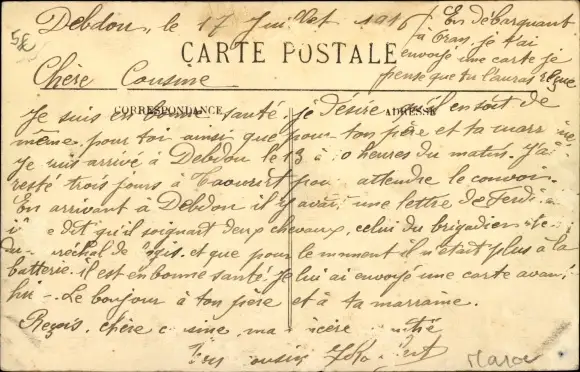 5€
Debdou, le 17 Juillet 1916
En débarquant
à Oran, je t'ai
envoyé une carte je
pense que tu l'auras reçue
CARTE POSTALE
Chère Cousine
CORRESPONDANCE
ADRESSE
Je suis en bonne santé je désire qu'il en soit de
même pour toi ainsi que pour ton père et ta marraine
Je suis arrivé à Debdou le 13 à 10 heures du matin. J'ai
resté trois jours à Taourirt pour attendre le convoi.
En arrivant à Debdou il y avait une lettre de Ferdi.
dit qu'il soignait deux chevaux, celui du brigadier et
du maréchal des logis. et que pour le moment il n'était plus à la
batterie. il est en bonne santé. Je lui ai envoyé une carte avant
hier. Le bonjour à ton père et à ta marraine.
Reçois, chère cousine, ma sincère amitié
Ton cousin
Maroc